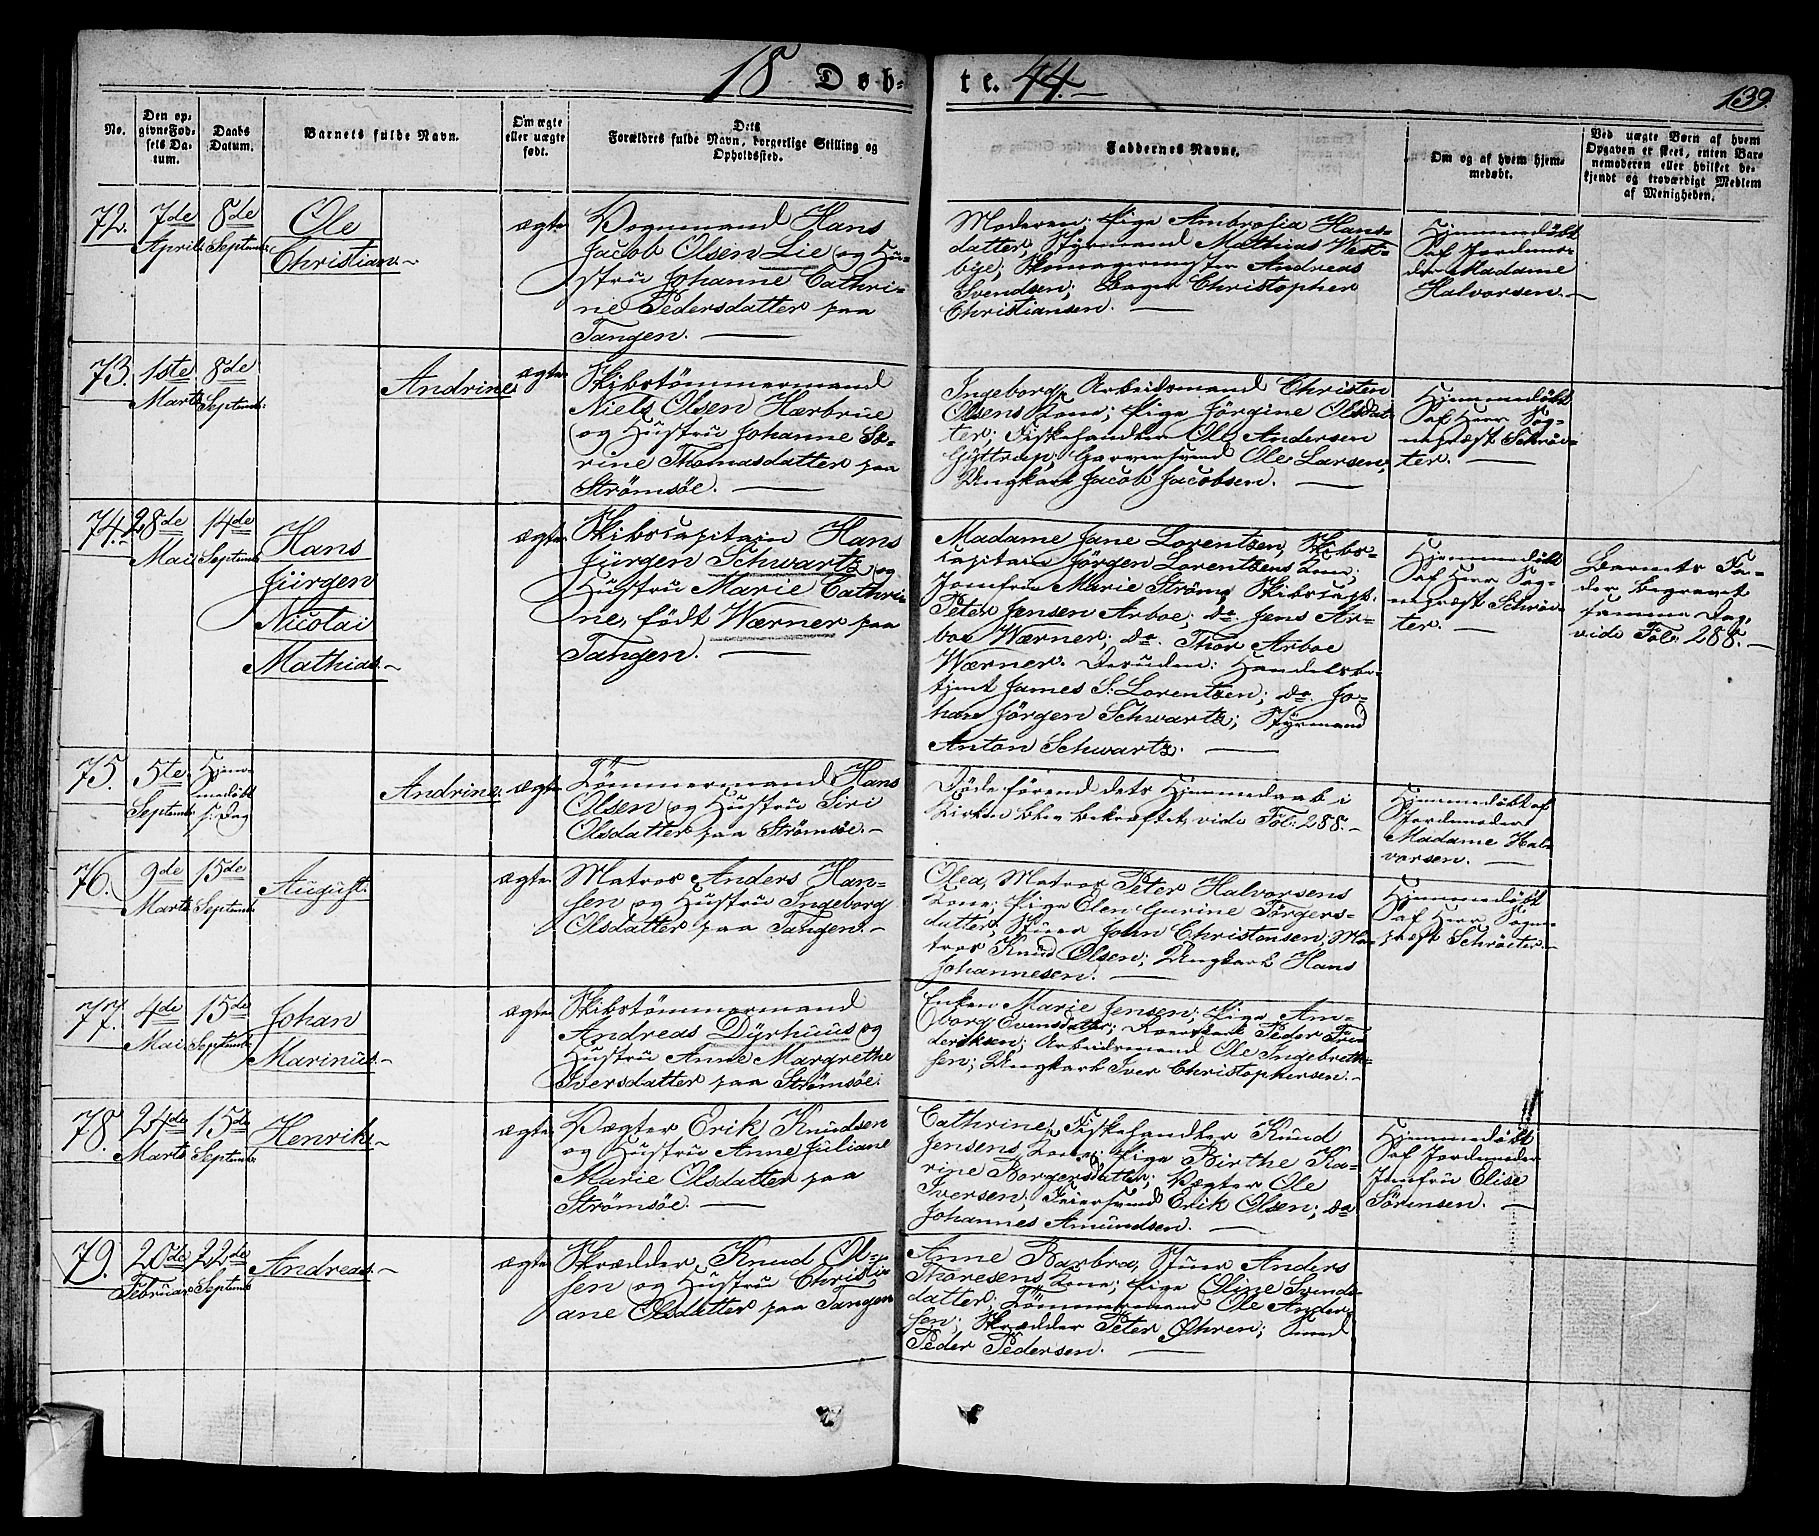 18 Døb- te. 44.
139.
No.
Den op-
givne Fød-
sels Da-
tum.
Daabs
Datum.
Barnets fulde Navn.
Om ægte
eller uægte
født.
Dets
Forældres fulde Navn, borgerlige Stilling og
Opholdssted.
Faddernes Navne.
Om og af hvem hjem-
medøbt.
Ved uægte Børn af hvem
Opgaven er skeet, enten Bar-
nemoderen eller hvilket be-
kjendt og troværdigt Medlem
af Menigheden.
72. 7de 8de Ole ægte
April Septembr Christian.
Vognmand Hans
Jacob Olsen Lie og Hu-
stru Johanne Cathri-
ne Pedersdatter paa
Tangen.
Moderen; Pige Ambrosia Hans-
datter, Styrmand Mathias West-
bye; Skomagermester Andreas
Svendsen; Bager Christopher
Christiansen.
Hjemmedøbt
af Jordemo-
der Madame
Halvorsen.
73. 1ste 8de Andrine ægte
Marts Septembr
Skibstømmermand
Niels Olsen Hærbrue
og Hustru Johanne Sø-
rine Thomasdatter paa
Strømsøe.
Ingeborg, Arbeidsmand Christen
Olsens Kone; Pige Jörgine Olsdat-
ter; Fiskehandler Ole Andersen
Garversvend Ole Larsen,
Ungkarl Jacob Jacobsen.
Hjemmedøbt
af Herr Sog-
nepræst Schröe-
ter.
74. 28de 14de Hans ægte
Mai Septembr Jürgen
Nicolai
Mathias
Skibscapitain Hans
Jürgen Schwartz og
Hustru Marie Cathri-
ne, født Wærner paa
Tangen.
Madame Jane Lorentzen, Skibs-
capitain Jørgen Lorentzens Kone;
Jomfru Marie Strøm; Skibscapt.
Peter Jensen Arboe; do. Jens Ar-
boe Wærner; do. Thor Arboe
Wærner. Desuden: Handelsbe-
tjent James S. Lorentzen; do. Jo-
han Jörgen Schwartz; Styrmand
Anton Schwartz.
Hjemmedøbt
af Herr Sog-
nepræst Schröe-
ter.
Barnets Fa-
der begravet
samme Dag,
vide Fol: 288.
75. 5te Hjem- Andrine ægte
Septembr medøbt
s. Dag
Tømmermand Hans
Olsen og Hustru Siri
Olsdatter paa Strømsøe.
Døde førend dets Hjemmedaab i
Kirken blev bekræftet, vide Fol: 288.
Hjemmedøbt af
Jordemoder
Madame Hal-
vorsen.
76. 9de 15de August. ægte
Marts Septembr
Matros Anders Han-
sen og Hustru Ingeborg
Olsdatter paa Tangen.
Olea, Matros Peter Halvorsens
Kone; Pige Elen Gurine Törgers-
datter, John Christensen, Ma-
tros Knud Olsen; Ungkarl Hans
Johannesen.
Hjemmedøbt
af Herr Sogne-
præst Schröeter.
77. 4de 15de Johan ægte
Mai Septembr Marinus.
Skibstømmermand
Andreas Dyrhuus og
Hustru Anne Margrethe
Iversdatter paa Strømsøe.
Enken Marie Jensen; Pige An-
borg Evensdatter; Peder Fre-
deriksen; Arbeidsmand Ole Ingebreth-
sen; Ungkarl Iver Christophersen.
78. 24de 15de Henrik ægte
Marts Septembr
Vægter Erik Knudsen
og Hustru Anne Juliane
Marie Olsdatter paa
Strømsøe.
Cathrine, Fiskehandler Knud
Jensens Kone; Pige Birthe Ka-
rine Borgersdatter; Vægter Ole
Iversen; Feiersvend Erik Olsen; do
Johannes Amundsen.
Hjemmedøbt
af Jordemoder
Jomfru Elise
Sørensen.
79. 20de 22de Andreas. ægte
Februar Septembr
Skrædder Knud Ol-
sen og Hustru Christi-
ane Olsdatter paa Tangen
Anne Barbra, Anders
Thoresens Kone; Pige Oline Svends-
datter; Tømmermand Ole Ander-
sen; Skrædder Peter Øhren; Svend
Peder Pedersen.